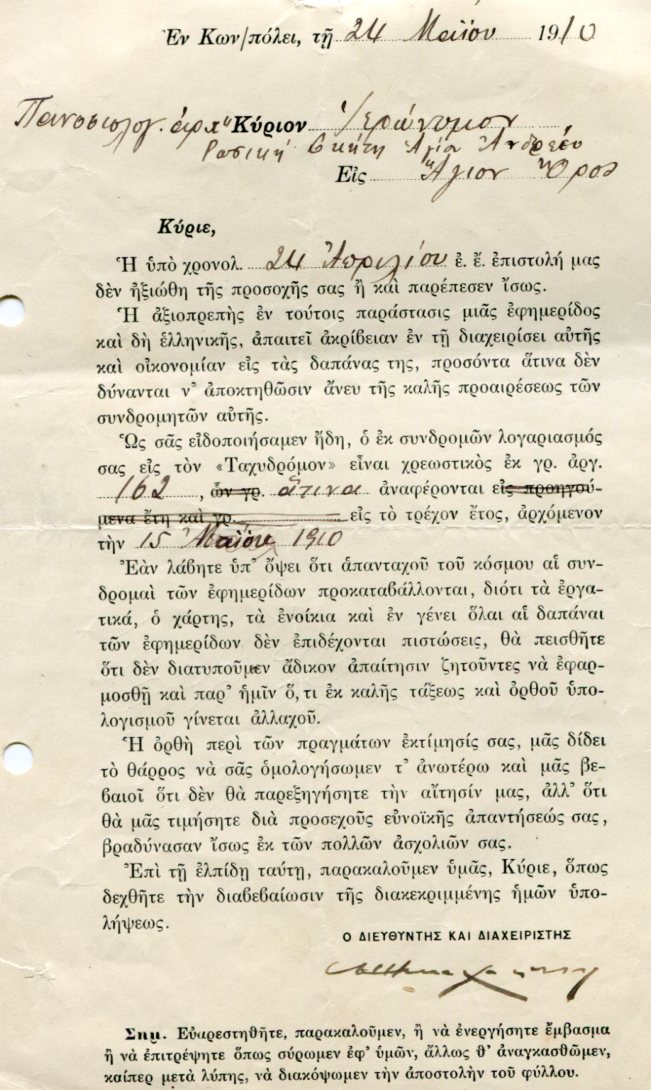 Ἐν Κων/πόλει, τῇ 24 Μαΐου 1910
Πανοσιολογ. ἀρχ Κύριον Ἱερώνυμον
Ρωσικὴ Σκήτη Ἁγία Ἀνδρέου
Εἰς Ἅγιον Ὄρος
Κύριε,
Ἡ ὑπὸ χρονολ. 24 Ἀπριλίου ἐ. ἔ. ἐπιστολή μας
δὲν ἠξιώθη τῆς προσοχῆς σας ἢ καὶ παρέπεσεν ἴσως.
Ἡ ἀξιοπρεπὴς ἐν τούτοις παράστασις μιᾶς ἐφημερίδος
καὶ δὴ ἑλληνικῆς, ἀπαιτεῖ ἀκρίβειαν ἐν τῇ διαχειρίσει αὐτῆς
καὶ οἰκονομίαν εἰς τὰς δαπάνας της, προσόντα ἅτινα δὲν
δύνανται ν' ἀποκτηθῶσιν ἄνευ τῆς καλῆς προαιρέσεως τῶν
συνδρομητῶν αὐτῆς.
Ὡς σᾶς εἰδοποιήσαμεν ἤδη, ὁ ἐκ συνδρομῶν λογαριασμός
σας εἰς τὸν «Ταχυδρόμον» εἶναι χρεωστικὸς ἐκ γρ. ἀργ.
162 , ὧν γρ. ἅτινα ἀναφέρονται εἰς προηγού-
μενα ἔτη καὶ γρ. εἰς τὸ τρέχον ἔτος, ἀρχόμενον
τὴν 15 Μαΐου 1910
Ἐὰν λάβητε ὑπ' ὄψει ὅτι ἁπανταχοῦ τοῦ κόσμου αἱ συν-
δρομαὶ τῶν ἐφημερίδων προκαταβάλλονται, διότι τὰ ἐργα-
τικά, ὁ χάρτης, τὰ ἐνοίκια καὶ ἐν γένει ὅλαι αἱ δαπάναι
τῶν ἐφημερίδων δὲν ἐπιδέχονται πιστώσεις, θὰ πεισθῆτε
ὅτι δὲν διατυποῦμεν ἄδικον ἀπαίτησιν ζητοῦντες νὰ ἐφαρ-
μοσθῇ καὶ παρ' ἡμῖν ὅ,τι ἐκ καλῆς τάξεως καὶ ὀρθοῦ ὑπο-
λογισμοῦ γίνεται ἀλλαχοῦ.
Ἡ ὀρθὴ περὶ τῶν πραγμάτων ἐκτίμησίς σας, μᾶς δίδει
τὸ θάρρος νὰ σᾶς ὁμολογήσωμεν τ' ἀνωτέρω καὶ μᾶς βε-
βαιοῖ ὅτι δὲν θὰ παρεξηγήσητε τὴν αἴτησίν μας, ἀλλ' ὅτι
θὰ μᾶς τιμήσητε διὰ προσεχοῦς εὐνοϊκῆς ἀπαντήσεώς σας,
βραδύνασαν ἴσως ἐκ τῶν πολλῶν ἀσχολιῶν σας.
Ἐπὶ τῇ ἐλπίδῃ ταύτῃ, παρακαλοῦμεν ὑμᾶς, Κύριε, ὅπως
δεχθῆτε τὴν διαβεβαίωσιν τῆς διακεκριμμένης ἡμῶν ὑπο-
λήψεως.
Ο ΔΙΕΥΘΥΝΤΗΣ ΚΑΙ ΔΙΑΧΕΙΡΙΣΤΗΣ
Σημ. Εὐαρεστηθῆτε, παρακαλοῦμεν, ἢ νὰ ἐνεργήσητε ἔμβασμα
ἢ νὰ ἐπιτρέψητε ὅπως σύρωμεν ἐφ' ὑμῶν, ἄλλως θ' ἀναγκασθῶμεν,
καίπερ μετὰ λύπης, νὰ διακόψωμεν τὴν ἀποστολὴν τοῦ φύλλου.